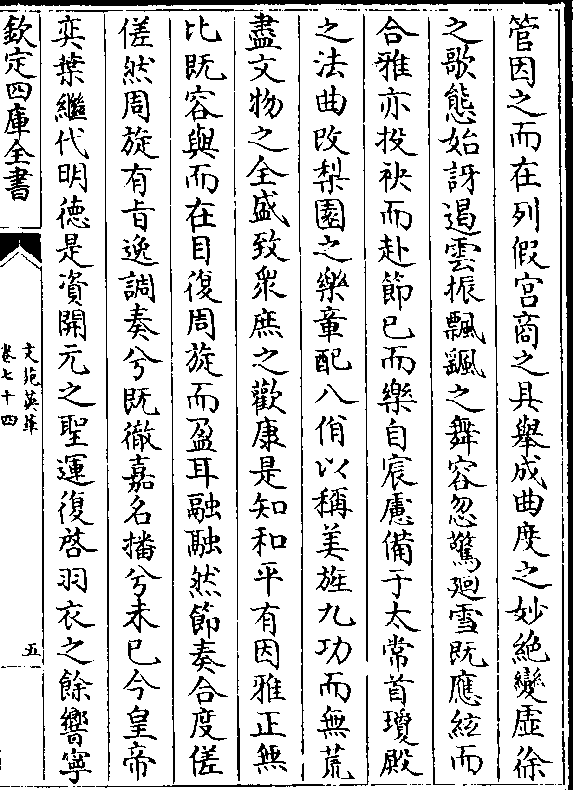 管因之而在列假宫商之具舉成曲度之妙絶變虚徐
之歌態始訝遏雲振飄飖之舞容忽驚廻雪既應絃而
合雅亦投袂而赴節已而樂自宸慮備于太常首瓊殿
之法曲改梨園之樂章配八佾以稱美旌九功而無荒
盡文物之全盛致衆庶之歡康是知和平有因雅正無
比既容與而在目復周旋而盈耳融融然節奏合度傞
傞然周旋有旨逸調奏兮既徹嘉名播兮未已今皇帝
奕葉繼代明徳是資開元之聖運復啓羽衣之餘響寧
欽定四庫全書
文苑英華
卷七十四
五